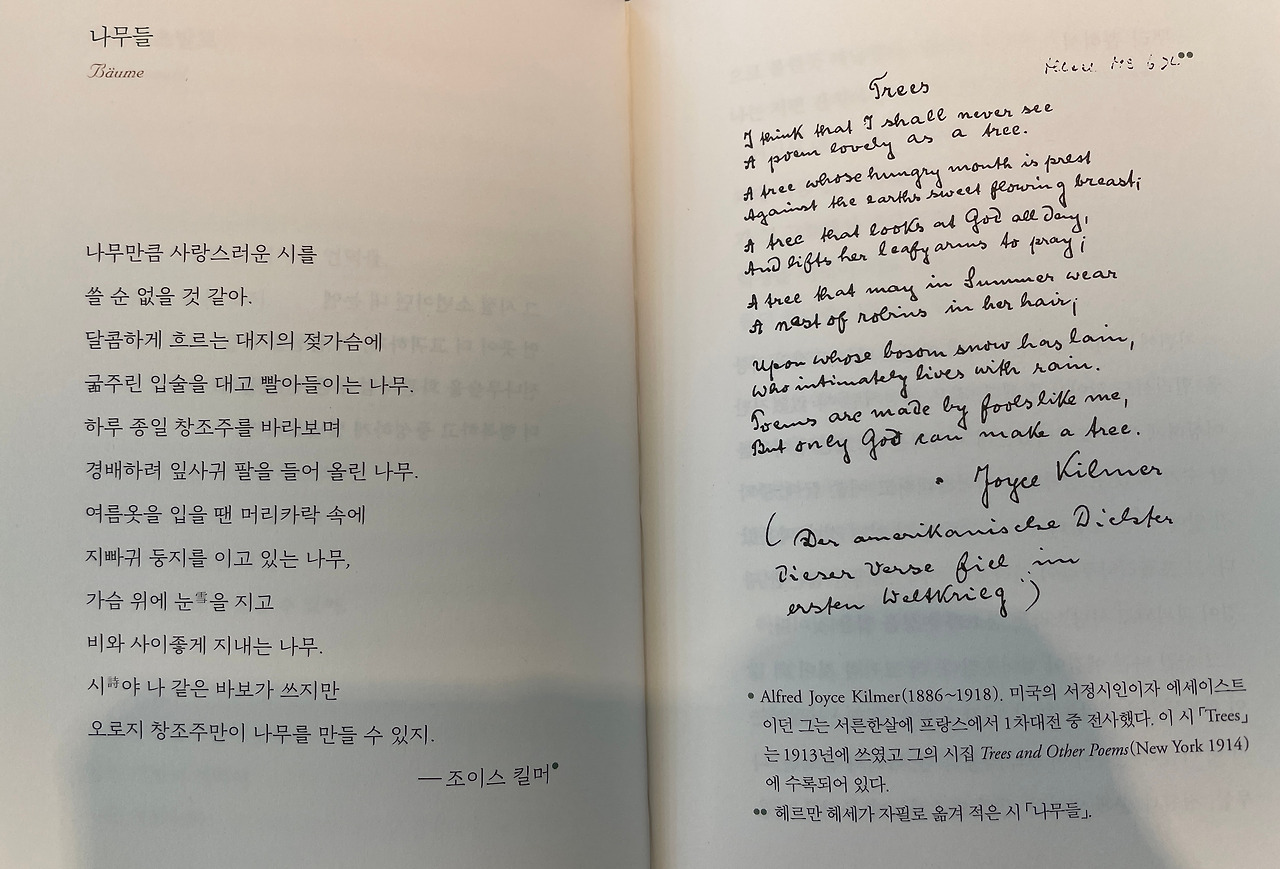 나무들
Bäume
나무만큼 사랑스러운 시를
쓸 순 없을 것 같아.
달콤하게 흐르는 대지의 젖가슴에
굶주린 입술을 대고 빨아들이는 나무.
하루 종일 창조주를 바라보며
경배하려 잎사귀 팔을 들어 올린 나무.
여름옷을 입을 땐 머리카락 속에
지빠귀 둥지를 이고 있는 나무,
가슴 위에 눈雪을 지고
비와 사이좋게 지내는 나무.
시詩야 나 같은 바보가 쓰지만
오로지 창조주만이 나무를 만들 수 있지.
— 조이스 킬머●
●●
Trees
I think that I shall never see
A poem lovely as a tree.
A tree whose hungry mouth is prest
Against the earths sweet flowing breast;
A tree that looks at God all day,
And lifts her leafy arms to pray;
A tree that may in Summer wear
A nest of robins in her hair;
Upon whose bosom snow has lain,
Who intimately lives with rain.
Poems are made by fools like me,
But only God can make a tree.
● Joyce Kilmer
(Der amerikanische Dichter
dieser Verse fiel im
ersten Weltkrieg)
● Alfred Joyce Kilmer(1886~1918). 미국의 서정시인이자 에세이스트
이던 그는 서른한살에 프랑스에서 1차대전 중 전사했다. 이 시 「Trees」
는 1913년에 쓰였고 그의 시집 Trees and Other Poems(New York 1914)
에 수록되어 있다.
●● 헤르만 헤세가 자필로 옮겨 적은 시 「나무들」.